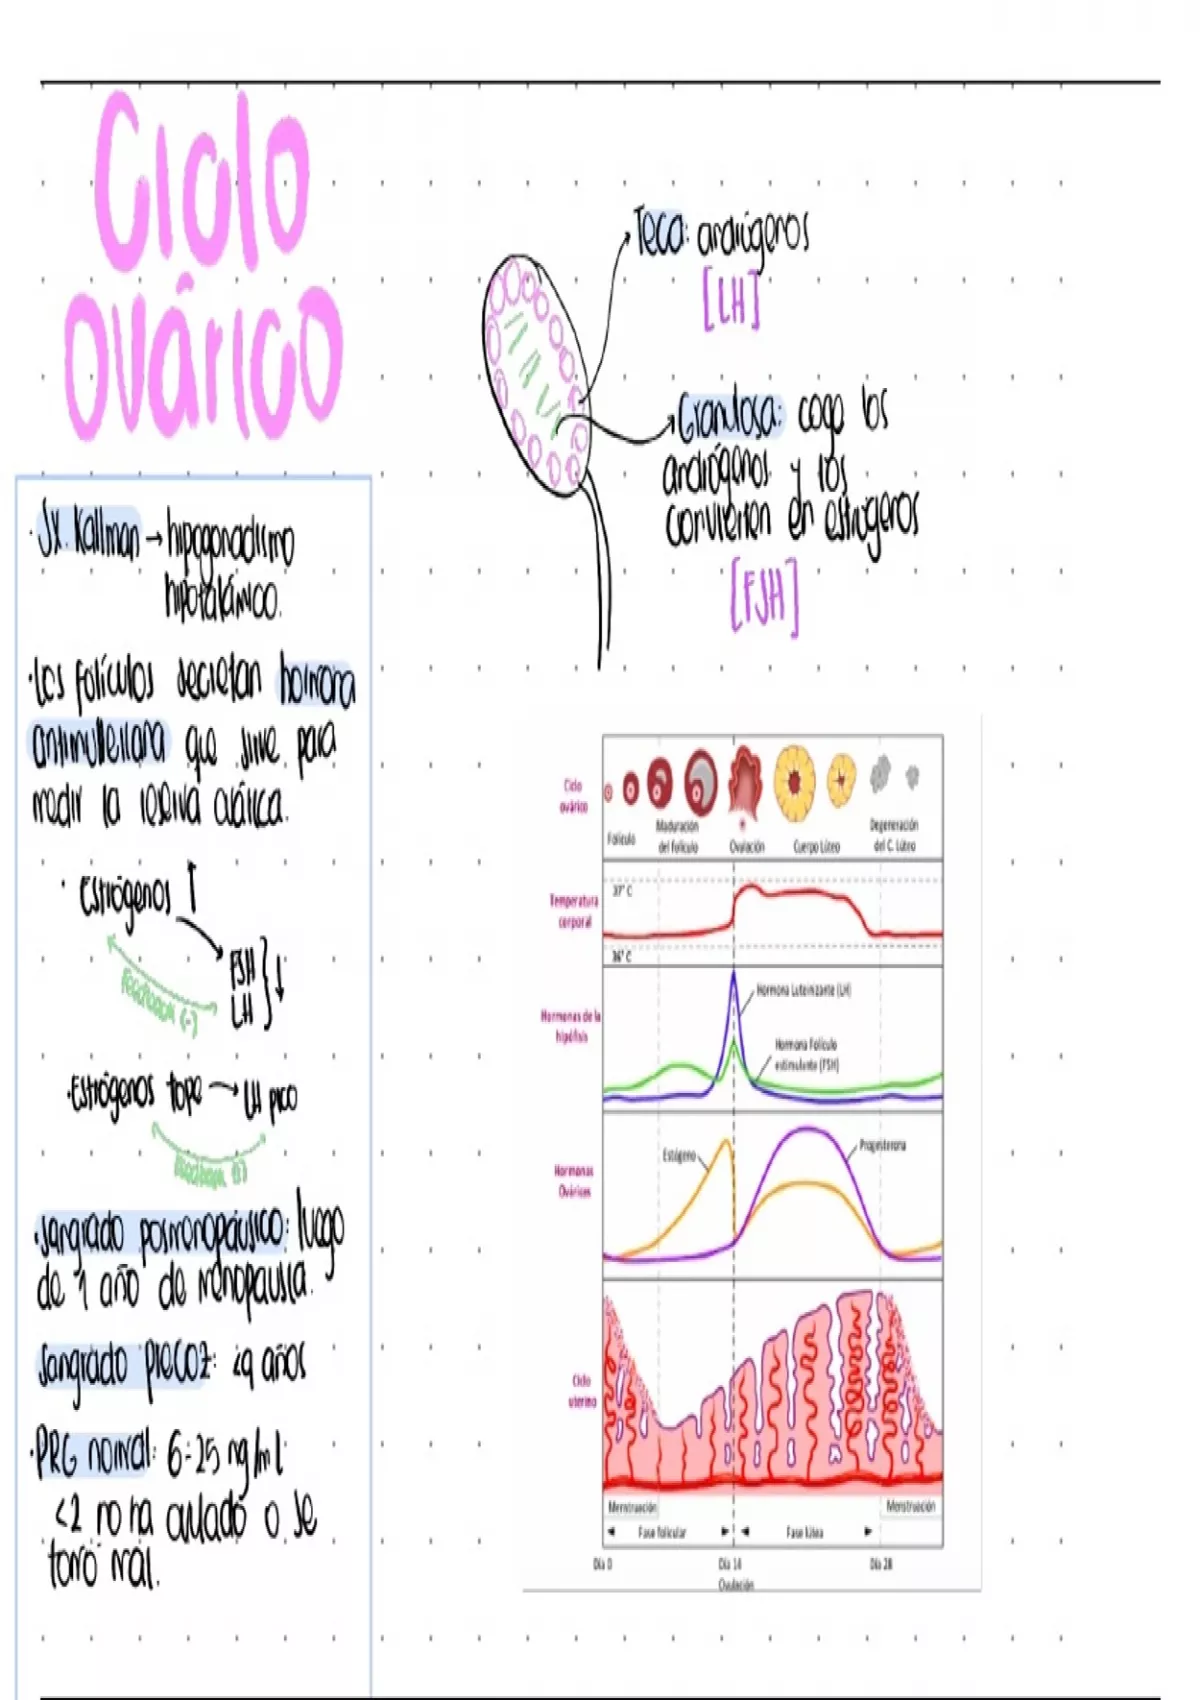 Ciclo
ovárico
Teca: andrógenos
[LH]
Granulosa: coge los
andrógenos y los
convierten en estrógenos
[FSH]
· Sx. Kallman → hipogonadismo
hipotalámico.
· Los folículos secretan hormona
antimulleriana que sirve para
medir la reserva ovárica.
· Estrógenos ↑
FSH
LH } ↓
Feedback (-)
· Estrógenos tope → LH pico
Feedback (+)
· Sangrado posmenopáusico: luego
de 1 año de menopausia.
Sangrado precoz: <9 años
· PRG normal: 6-25 ng/ml
<2 no ha ovulado o se
tomó mal.
Ciclo
ovárico
Folículo
Maduración
del folículo
Ovulación
Cuerpo Lúteo
Degeneración
del C. Lúteo
Temperatura
corporal
37° C
36° C
Hormonas de la
hipófisis
Hormona Luteinizante (LH)
Hormona Folículo
estimulante (FSH)
Hormonas
Ováricas
Estógeno
Progesterona
Ciclo
uterino
Menstruación
Menstruación
Fase folicular
Fase lútea
Día 0
Día 14
Ovulación
Día 28